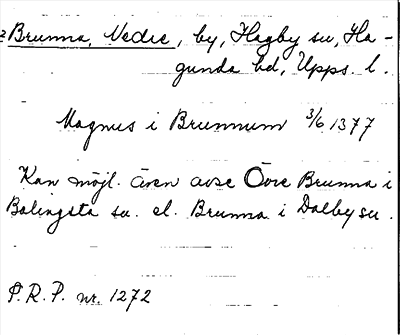 Brunna, Nedre, by, Hagby sn, Ha-
gunda hd, Upps. l.
Magnus i Brunnum 3/6 1377
Kan möjl. även avse Övre Brunna i
Balingsta sn. el. Brunna i Dalby sn.
P.R.P. nr. 1272